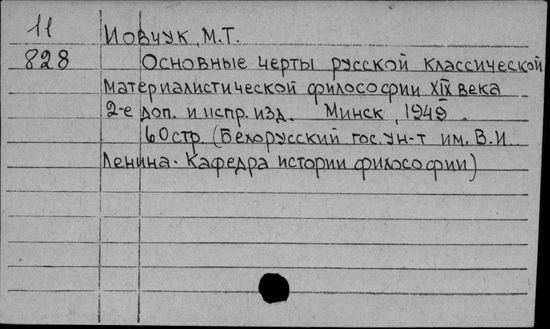 11
828
Иовчук, М.Т.
Основные черты русской классической
материалистической философии XIX века
2-е доп. и испр. изд. Минск, 1949.
60 стр. (Белорусский гос. ун-т им. В.И.
Ленина. Кафедра истории философии)